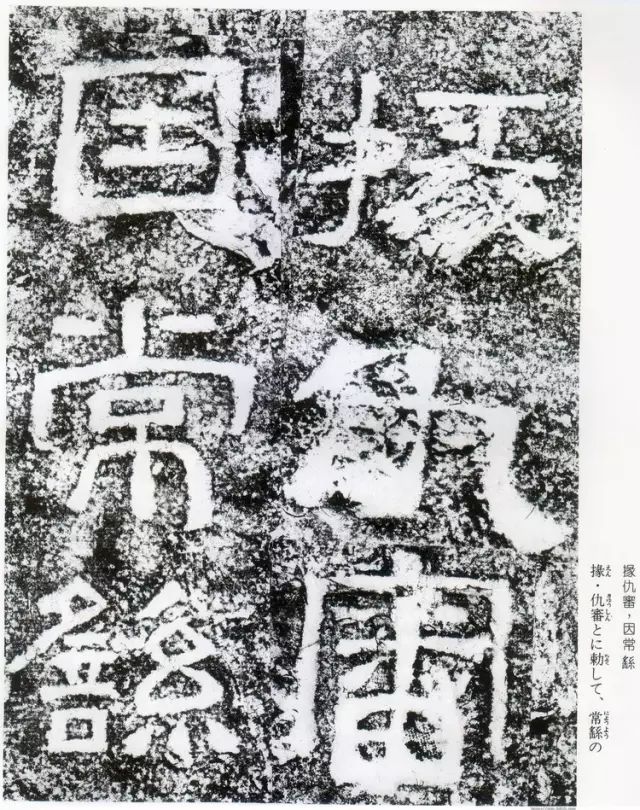 掾仇審
因常繇
掾仇審，因常繇
掾・仇審とに勅して、常繇の